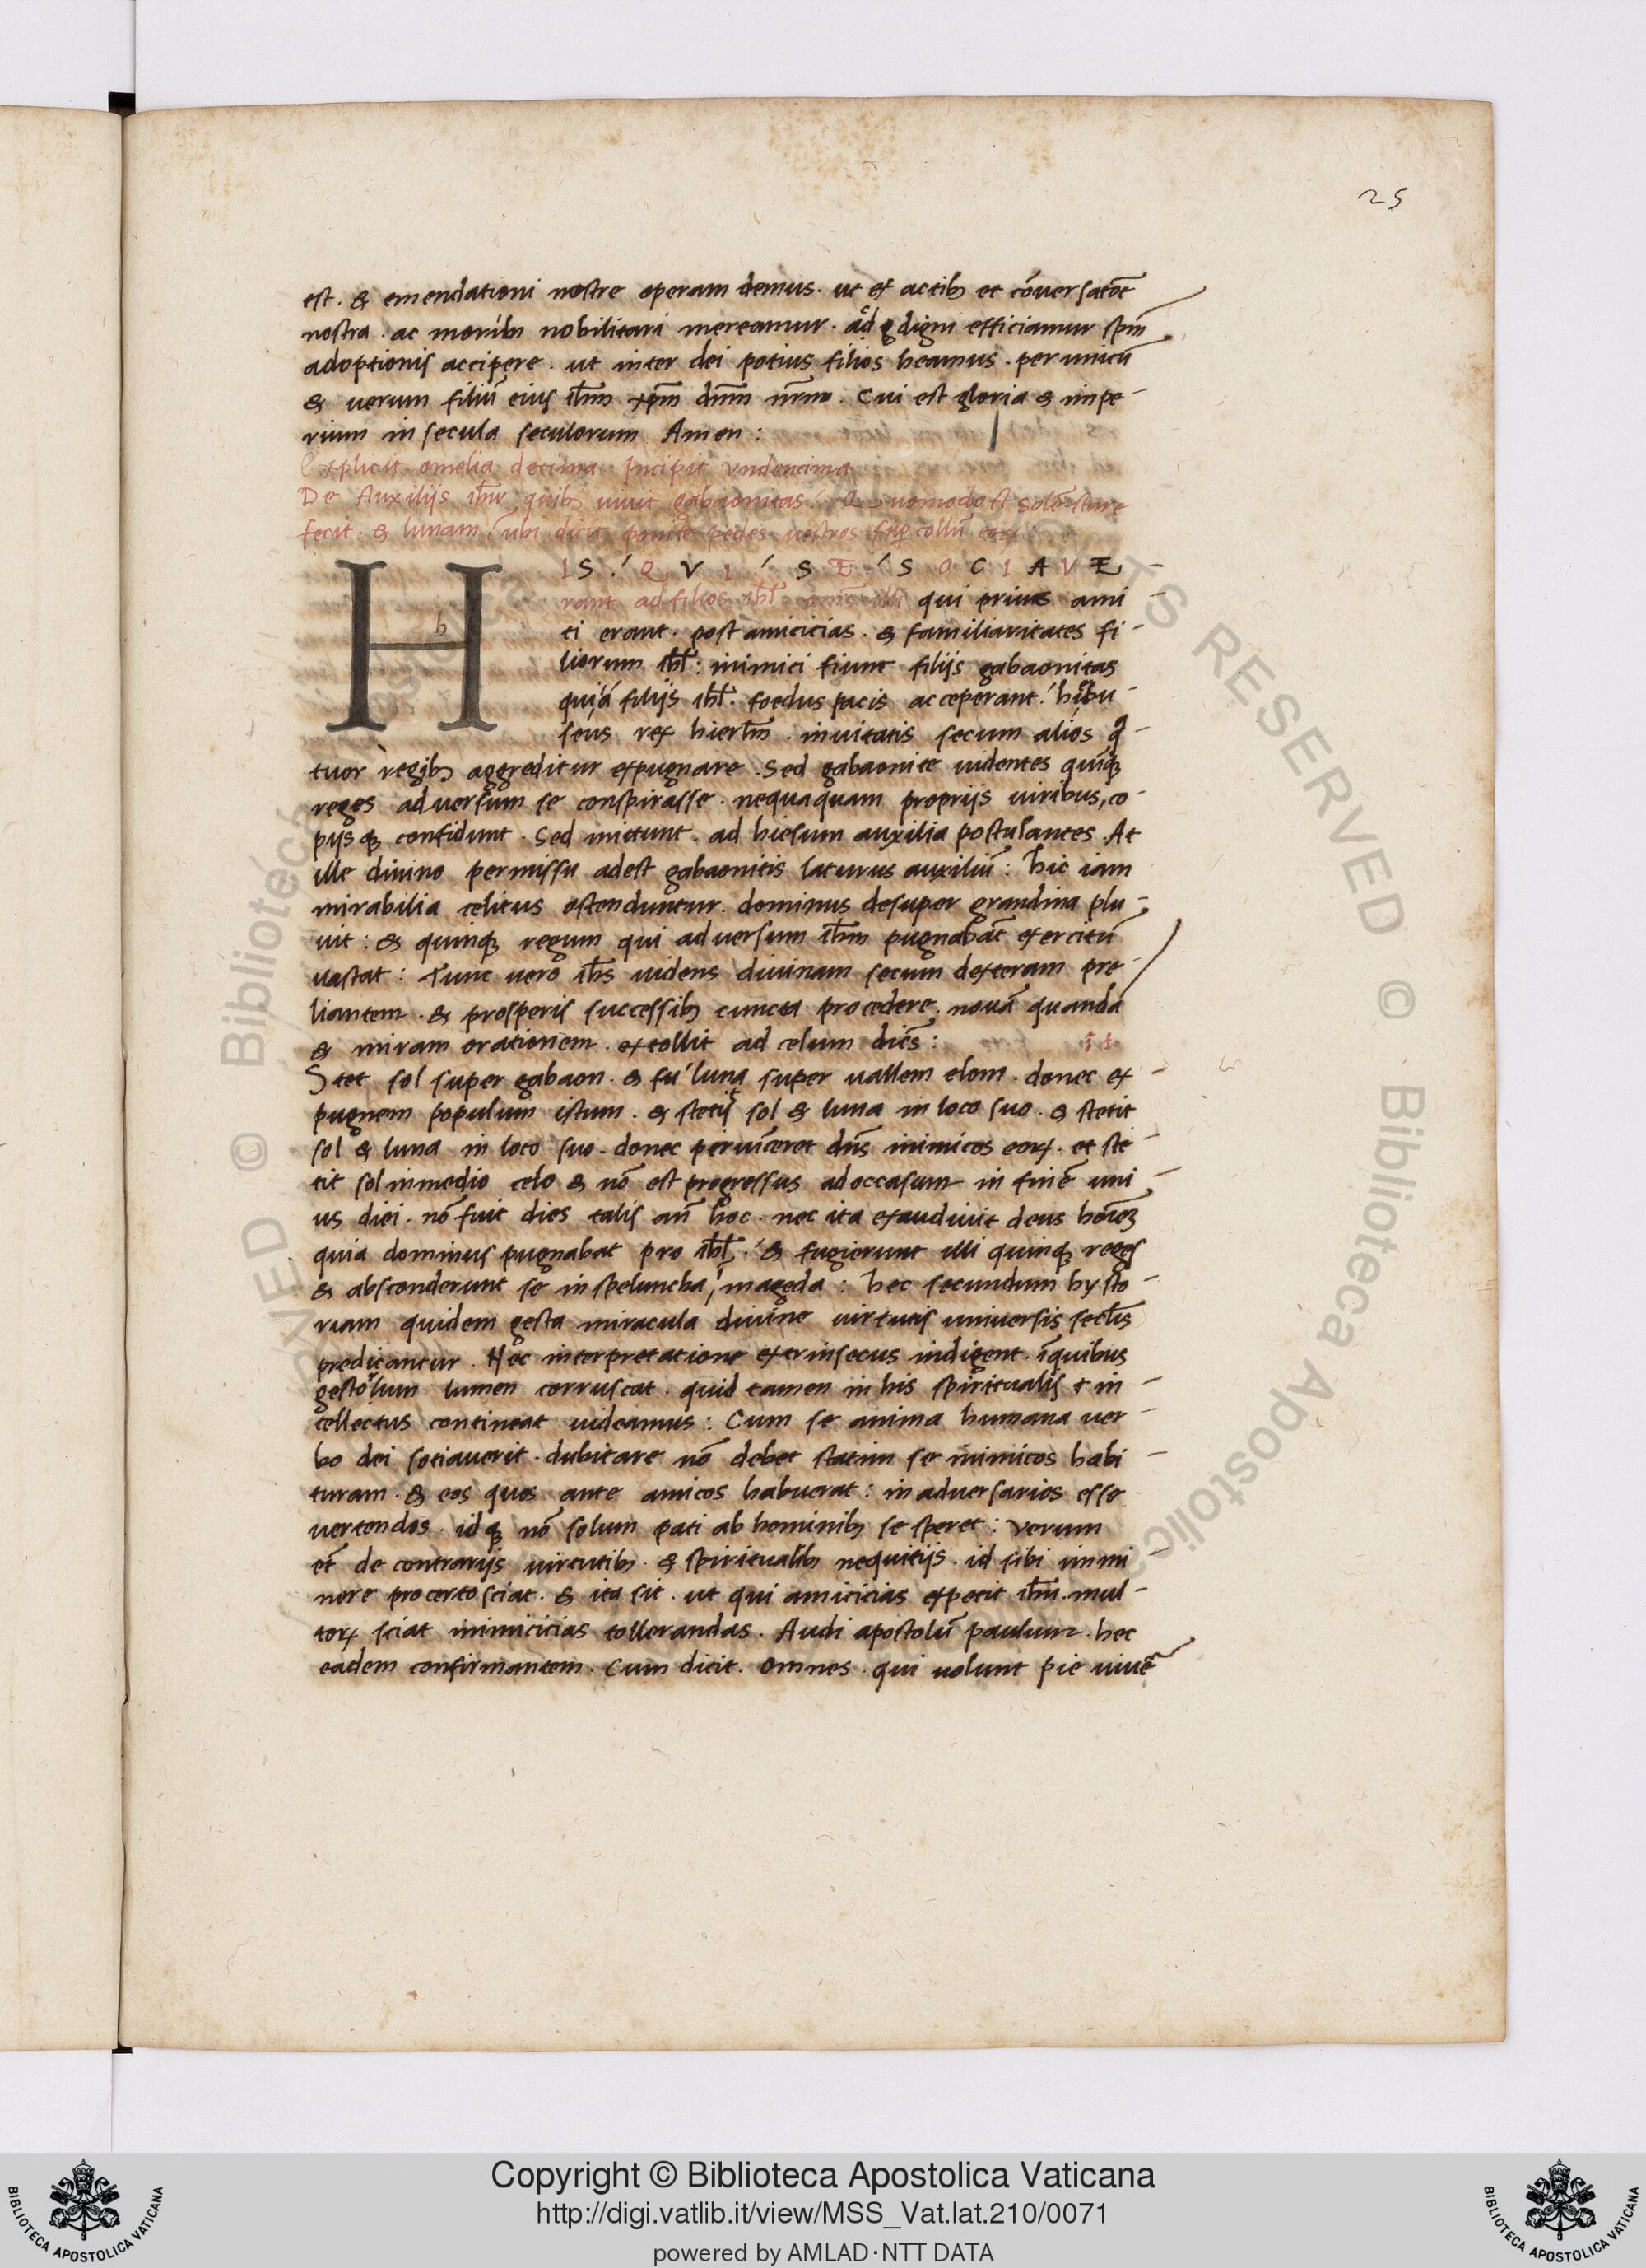 25
est. & emendationi nostre operam demus. ut ex actib; et cōuersatōe
nostra. ac morib; nobilitari mereamur. digni efficiamur spm̄
adoptionis accipere. ut inter dei potius filios beamus. per unicū
& uerum filiū eius ihm̄ xpm̄ dnm̄ nrm̄. Cui est gloria & impe-
rium in secula seculorum Amen:
Explicit omelia decima Incipit vndencima
De Auxilijs ihu quib; iuuit gabaonitas. Quomodo & solē stare
fecit. & lunam, ubi dicit ponite pedes uestros sup collū eoꝝ
H
h
IS. QVI SE SOCIAVE-
rant ad filios ihl̄ illi qui prius ami-
ci erant. post amicicias. & familiaritates fi-
liorum ihl̄: inimici fiunt filijs gabaonitas
quia filijs ihl̄. foedus pacis acceperant. hiebu-
seus rex hierlm̄. inuitatis secum alios q-
tuor regib; aggreditur expugnare. Sed gabaonite uidentes quinq;
reges aduersum se conspirasse. nequaquam proprijs uiribus, co-
pijsq; confidunt. Sed mittunt. ad hiesum auxilia postulantes. At
ille diuino permissu adest gabaonitis laturus auxiliū: hic iam
mirabilia celitus ostenduntur. dominus desuper grandina plu-
uit: & quinq; regum qui aduersum ihm̄ pugnabāt exercitū
uastat: Tunc uero ihs̄ uidens diuinam secum dexteram pre-
liantem. & prosperis successib; cuncta procedere. nouā quandā
& miram orationem. extollit ad celum dicēs:
Stet sol super gabaon. & luna super uallem elom. donec ex-
pugnem populum istum. & stetit sol & luna in loco suo. & stetit
sol & luna in loco suo. donec peruīceret dns̄ inimicos eoꝝ. et ste-
tit sol in medio celo & nō est progressus ad occasum in finē uni-
us diei. nō fuit dies talis an̄ hoc. nec ita exaudiuit deus hoīez
quia dominus pugnabat pro ihl̄. & fugierunt illi quinq; reges
& absconderunt se in speluncha, mageda: hec secundum hysto-
riam quidem gesta miracula diuine uirtutis uniuersis seclis
predicantur. Nec interpretatione extrinsecus indigent. īquibus
gestorum lumen corruscat. quid tamen in his spiritualis & in-
tellectus contineat uideamus: Cum se anima humana uer-
bo dei sotiauerit. dubitare nō debet statim se inimicos habi-
turam. & eos quos ante amicos habuerat: in aduersarios esse
uertendos. idq; nō solum pati ab hominib; se speret: Verum
et̄ de contrarijs uirtutib;. & spiritualib; nequitijs. id sibi immi-
nere pro certo sciat. & ita sit. ut qui amicicias expetit ihu. mul-
toꝝ sciat inimicicias tollerandas. Audi apostolū paulum. hec
eadem confirmantem. Cum dicit. Omnes qui uolunt pie uiuē
Copyright © Biblioteca Apostolica Vaticana
http://digi.vatlib.it/view/MSS_Vat.lat.210/0071
powered by AMLAD·NTT DATA
BIBLIOTECA APOSTOLICA VATICANA
BIBLIOTECA APOSTOLICA VATICANA